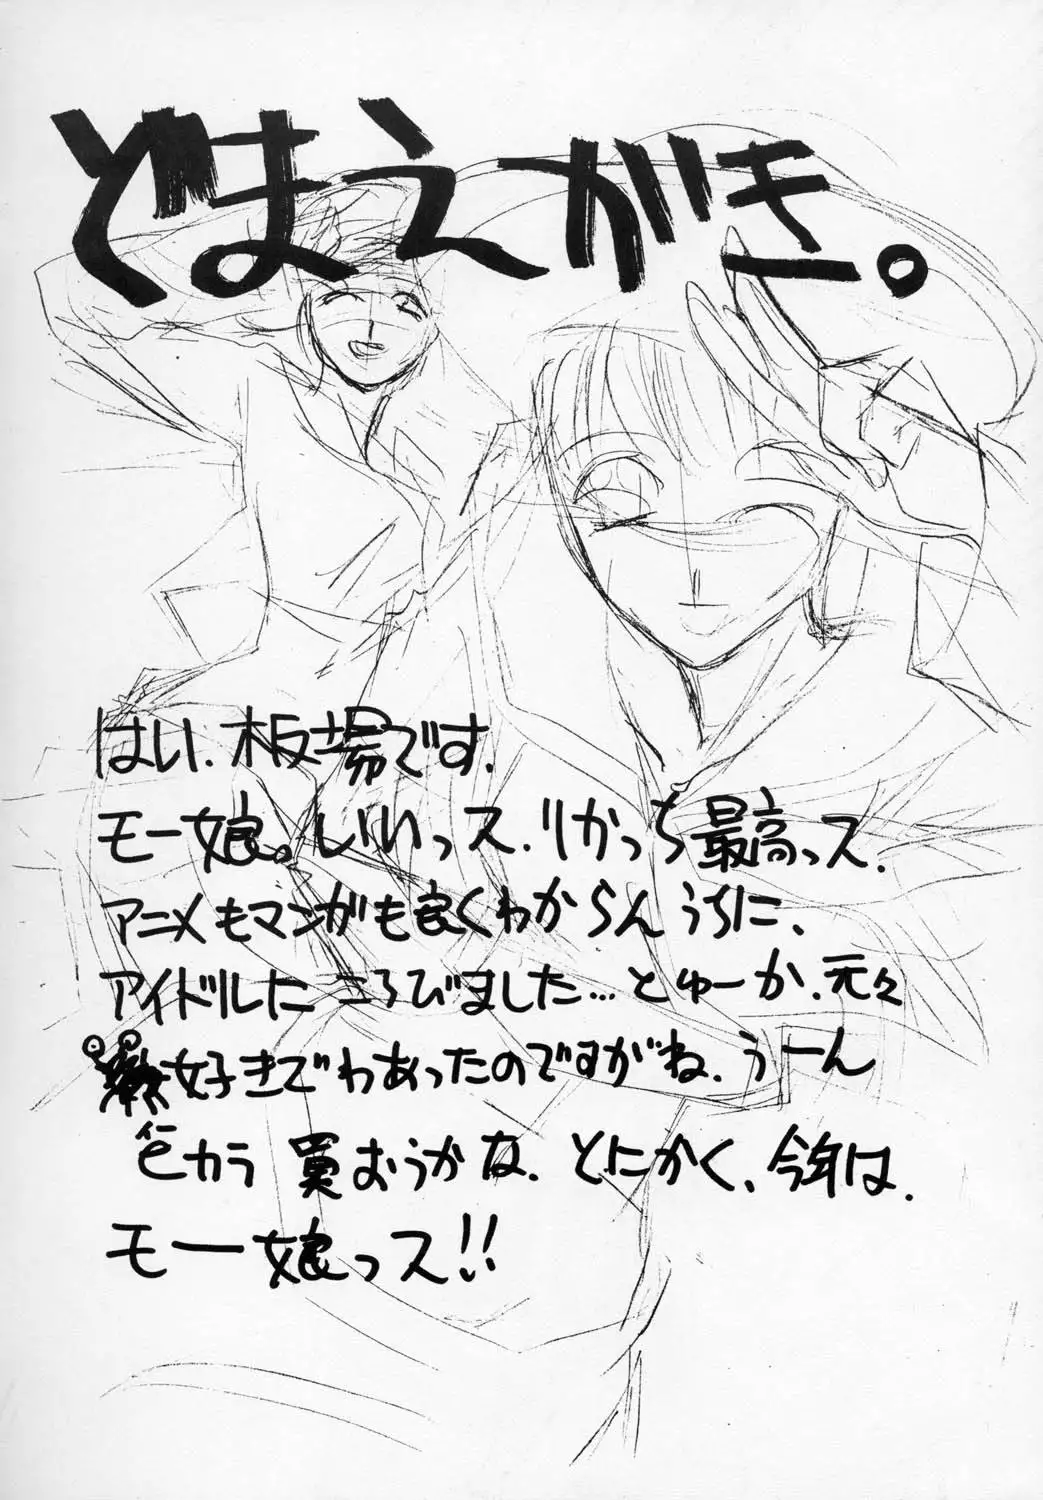 どまえがき。
はい、板場です。
モー娘。いいっス、りかっち最高っス、
アニメもマンガも良くわからんうちに、
アイドルにころびました…とゅーか、元々
好きでわあったのですがね、うーん
色カラ買おうかな、とにかく、今年は、
モー娘っス!!